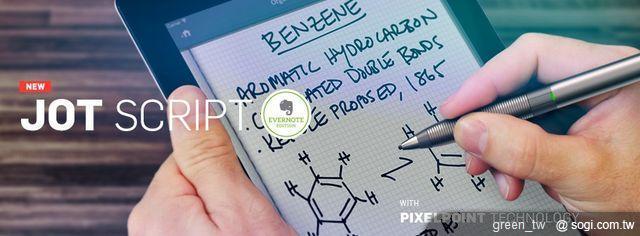 BENZENE
AROMATIC HYDROCARBON
DOUBLE BONDS
PROPOSED, 1865
NEW
JOT SCRIPT
EVERNOTE
EDITION
H H
H H
H H
H
WITH
PIXELPOINT TECHNOLOGY
green_tw @ sogi.com.tw